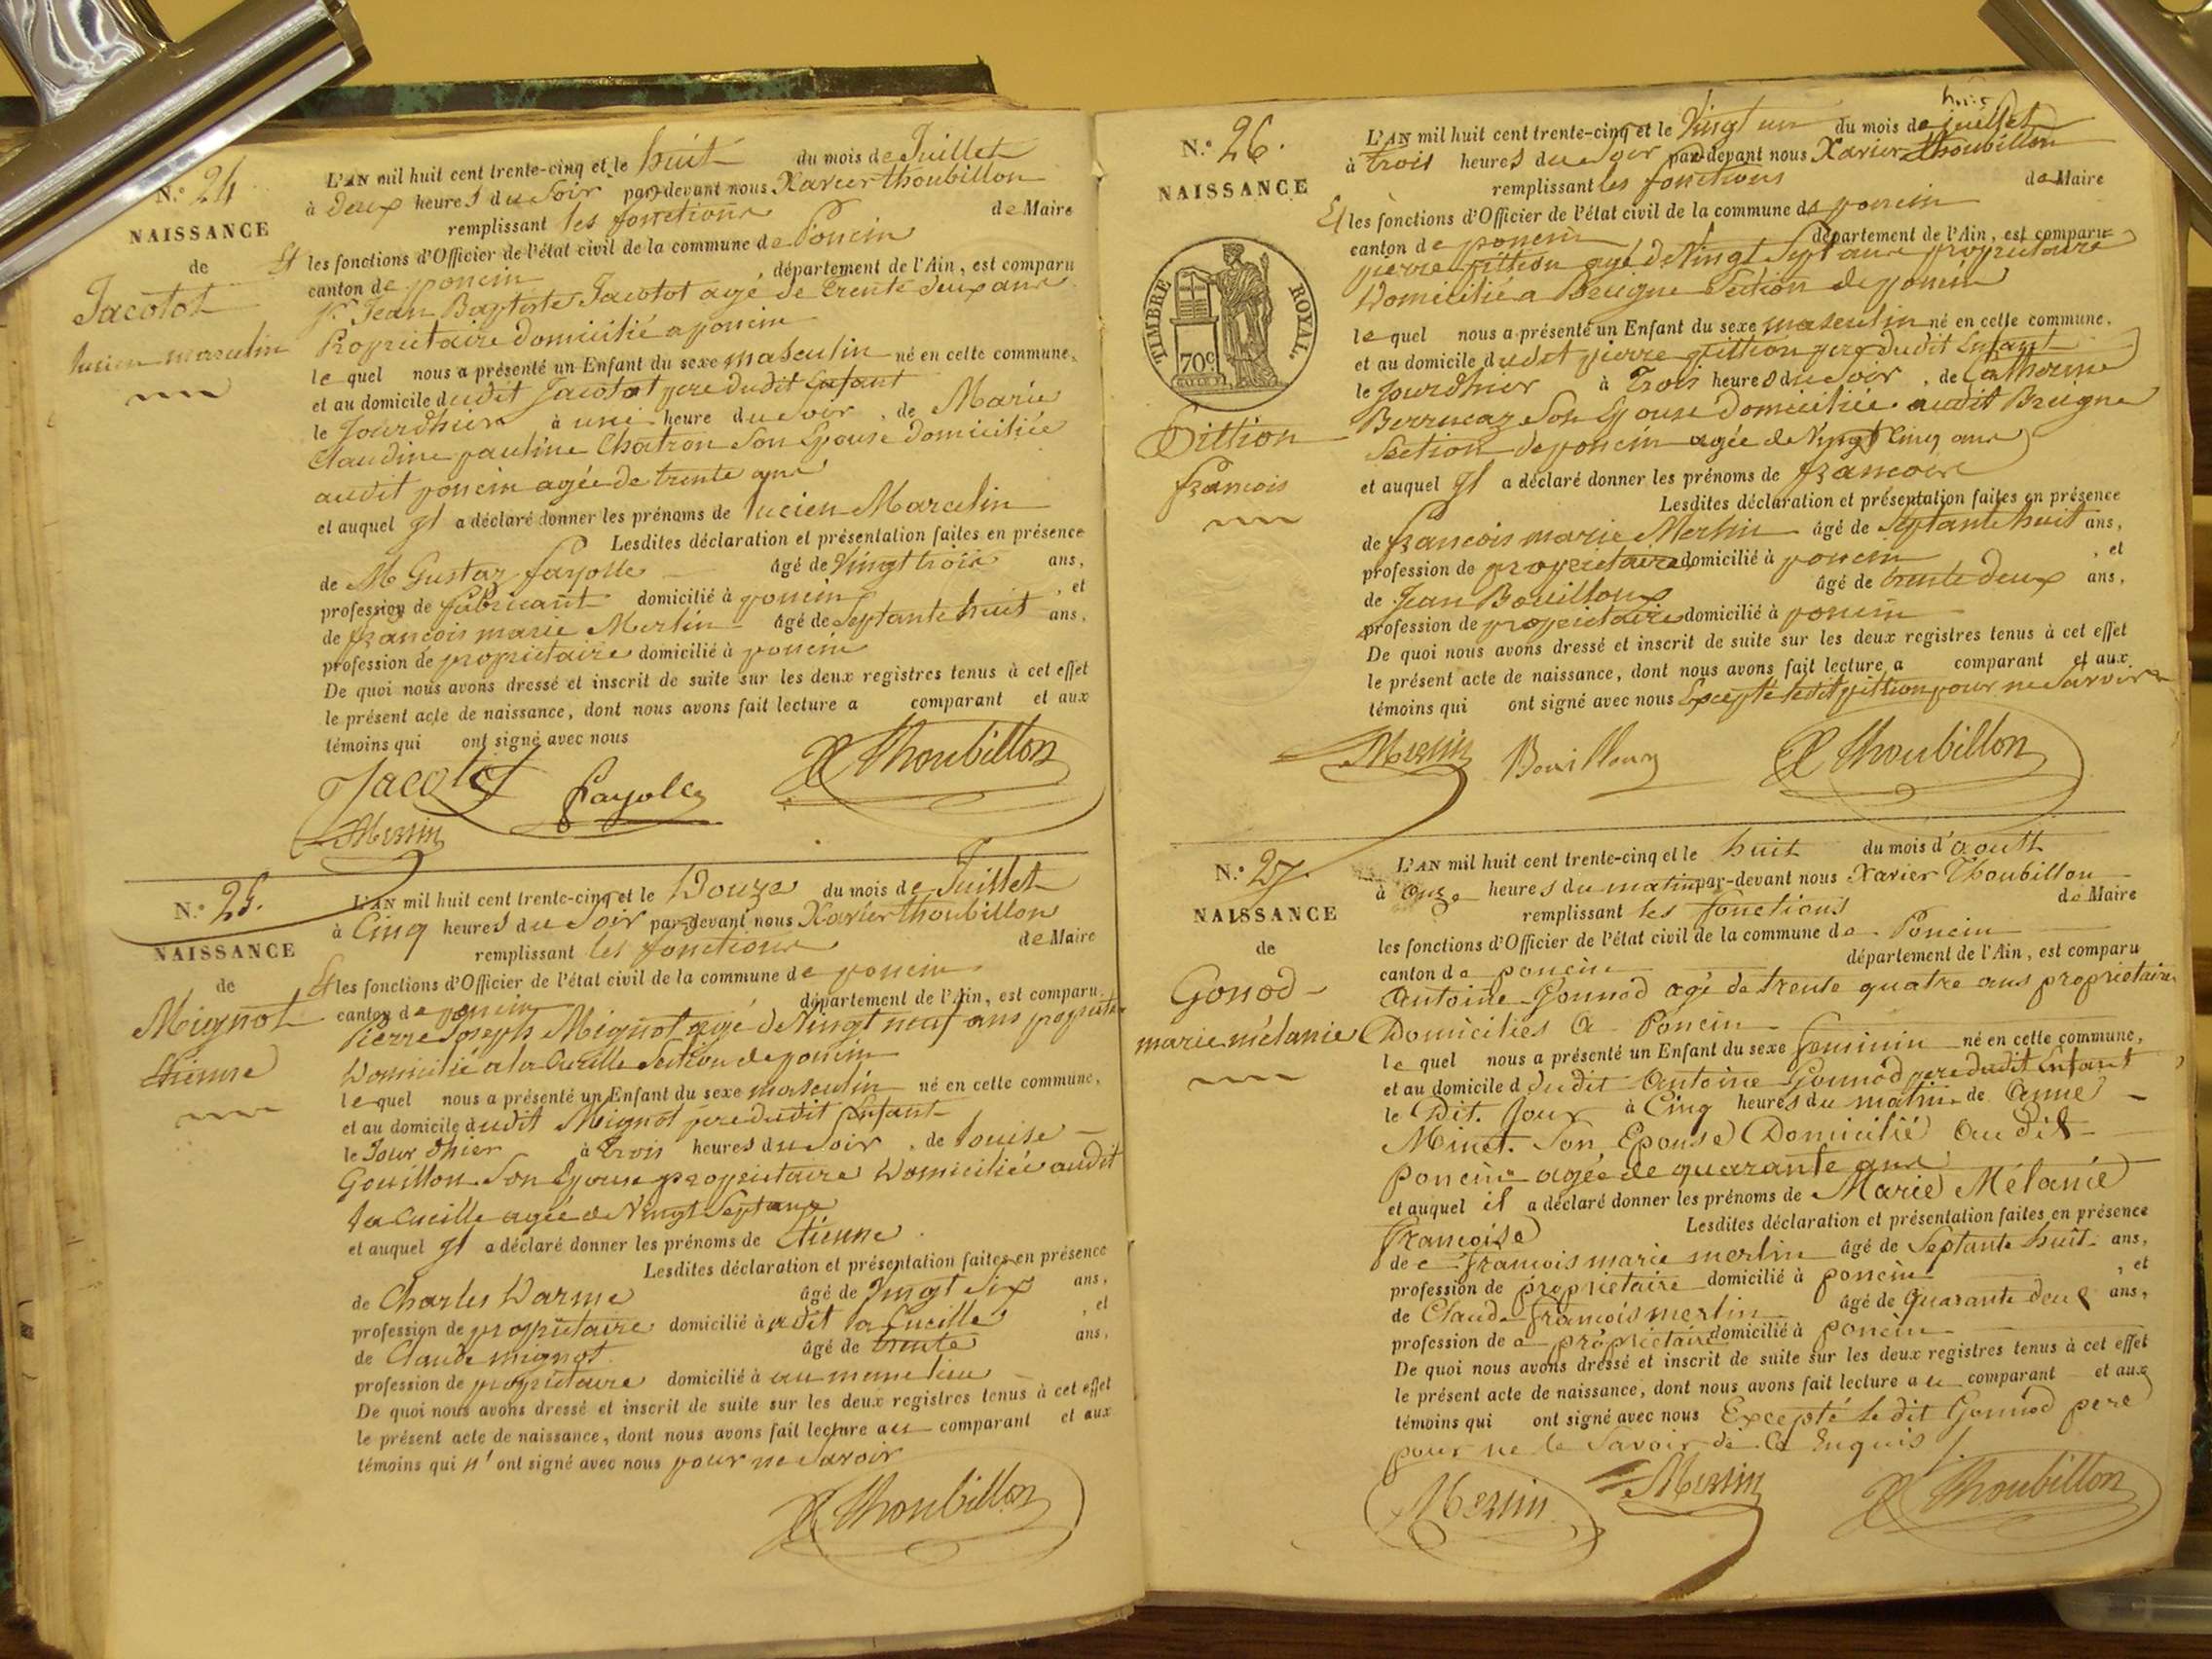 N.° 24
NAISSANCE
de
Jacotot
lucien marcelin
L'AN mil huit cent trente-cinq et le huit du mois de Juillet
à deux heures du Soir par-devant nous Xavier Thoubillon
remplissant les fonctions de Maire
Et les fonctions d'Officier de l'état civil de la commune de Poncin
canton de poncin , département de l'Ain, est comparu
Sr. Jean Baptiste Jacotot agé de trente deux ans
Proprietaire domicilié a poncin
lequel nous a présenté un Enfant du sexe masculin né en cette commune,
et au domicile dudit Jacotot pere dudit Enfant
le Jourdhier à une heure du Soir , de Marie
Claudine pauline Chatron Son Epouse domiciliée
audit poncin agée de trente ans
et auquel Il a déclaré donner les prénoms de lucien Marcelin
Lesdites déclaration et présentation faites en présence
de Mr Gustaz fayolle âgé de Vingt trois ans,
profession de fabricant domicilié à poncin , et
de françois marie Merlin âgé de Septante huit ans,
profession de proprietaire domicilié à poncin
De quoi nous avons dressé et inscrit de suite sur les deux registres tenus à cet effet
le présent acte de naissance, dont nous avons fait lecture a comparant et aux
témoins qui ont signé avec nous
Jacotot Fayolle X Thoubillon
Merlin
N.° 25.
NAISSANCE
de
Mignot
Etienne
L'AN mil huit cent trente-cinq et le Douze du mois de Juillet
à Cinq heures du Soir par-devant nous Xavier Thoubillon
remplissant les fonctions de Maire
Et les fonctions d'Officier de l'état civil de la commune de poncin
canton de poncin département de l'Ain, est comparu
Pierre Joseph Mignot agé de Vingt neuf ans propriete
Domicilié a la Cueille Section de poncin
lequel nous a présenté un Enfant du sexe masculin né en cette commune,
et au domicile dudit Mignot pere dudit Enfant
le Jour dhier à trois heures du Soir , de louise
Gouillon Son Epouse proprietaire Domiciliée audit
la Cueille agée de Vingt Sept ans
et auquel Il a déclaré donner les prénoms de Etienne
Lesdites déclaration et présentation faites en présence
de Charles Darme âgé de Vingt Six ans,
profession de proprietaire domicilié à udit la Cueille , et
de Claude mignot âgé de trente ans,
profession de proprietaire domicilié à au meme lieu
De quoi nous avons dressé et inscrit de suite sur les deux registres tenus à cet effet
le présent acte de naissance, dont nous avons fait lecture au comparant et aux
témoins qui n' ont signé avec nous pour ne Savoir
X Thoubillon
N.° 26.
NAISSANCE
TIMBRE ROYAL.
70c
Pittion
françois
L'AN mil huit cent trente-cinq et le Vingt un du mois de juillet
à trois heures du Soir par-devant nous Xavier Thoubillon
remplissant les fonctions de Maire
Et les fonctions d'Officier de l'état civil de la commune de poncin
canton de poncin département de l'Ain, est comparu
pierre pittion agé de Vingt Sept ans proprietaire
Domicilié a Breigne Section de poncin
lequel nous a présenté un Enfant du sexe masculin né en cette commune,
et au domicile dudit pierre pittion pere dudit Enfant
le Jourdhier à Trois heures du Soir , de Catherine
Berrucaz Son Epouse Domiciliée audit Breigne
Section de poncin agée de Vingt Cinq ans
et auquel Il a déclaré donner les prénoms de françois
Lesdites déclaration et présentation faites en présence
de françois marie Merlin âgé de Septante huit ans,
profession de proprietaire domicilié à poncin , et
de Jean Bouilloux âgé de trente deux ans,
profession de proprietaire domicilié à poncin
De quoi nous avons dressé et inscrit de suite sur les deux registres tenus à cet effet
le présent acte de naissance, dont nous avons fait lecture a comparant et aux
témoins qui ont signé avec nous Excepté ledit pittion pour ne Savoir
Merlin Bouilloux X Thoubillon
N.° 27.
NAISSANCE
de
Gonod
marie mélanie
L'AN mil huit cent trente-cinq et le huit du mois d'aoust
à onze heures du matin par-devant nous Xavier Thoubillon
remplissant les fonctions de Maire
les fonctions d'Officier de l'état civil de la commune de Poncin
canton de poncin département de l'Ain, est comparu
Antoine Gonnod agé de trente quatre ans proprietaire
Domiciliés a Poncin
lequel nous a présenté un Enfant du sexe feminin né en cette commune,
et au domicile d dudit Antoine Gonnod pere dudit Enfant ,
le Dit Jour à Cinq heures du matin de Anne
Minet Son Epouse Domicilié au dit
Poncin agée de quarante ans
et auquel il a déclaré donner les prénoms de Marie Mélanie
Françoise Lesdites déclaration et présentation faites en présence
de françois marie merlin âgé de Septante huit ans,
profession de proprietaire domicilié à poncin , et
de Claude françois merlin âgé de Quarante deux ans,
profession de proprietaire domicilié à poncin
De quoi nous avons dressé et inscrit de suite sur les deux registres tenus à cet effet
le présent acte de naissance, dont nous avons fait lecture au comparant et aux
témoins qui ont signé avec nous Excepté le dit Gonnod pere
pour ne le Savoir de ce Enquis
Merlin Merlin X Thoubillon